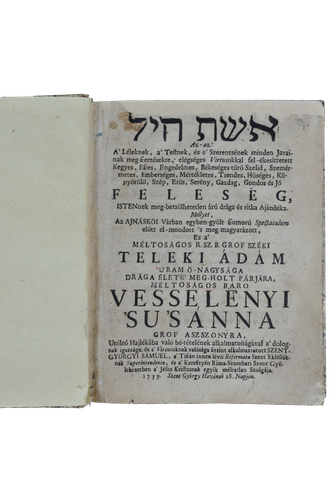 אשת חיל
Az-az:
A' Léleknek, a' Testnek, és a' Szerentsének minden Javai-
nak meg-szerzésekre, elégséges Virtusokkal fel-ékesíttetett
Kegyes, Eszes, Engedelmes, Békeséges-tűrő Szelíd, Szemér-
metes, Emberséges, Mértékletes, Tsendes, Hűséges, Kö-
nyörülő, Szép, Erős, Serény, Gazdag, Gondos és Jó
FELESÉG,
ISTENnek meg-betsülhetetlen árú drága és ritka Ajándéka.
Mellyet,
Az AJNÁSKŐI Várban egyben-gyűlt szomorú Spectaculum
előtt el-mondott 's meg magyarázott,
És a'
MÉLTOSÁGOS R. SZ. B. GROF SZÉKI
TELEKI ÁDÁM
URAM Ő-NAGYSÁGA
DRÁGA ÉLETE' MEG-HOLT PÁRJÁRA,
MÉLTOSÁGOS BARO
VESSELÉNYI
'SU'SÁNNA
GROF ASSZONYRA,
Utólsó Hajlékába való bé-tételének alkalmatosságával a' dolog-
nak igazsága, és a' Virtusoknak valósága szerint alkalmaztatott SZENT-
GYÖRGYI SÁMUEL, a' Tiszán innen levő Reformata Szent Ekklésiák-
nak Superintendense, és a' Keresztyén Rima-Szombati Szent Gyü-
lekezetben a' Jésus Kristusnak egyik méltatlan Szolgája.
1739. Szent György Havának 28. Napján.